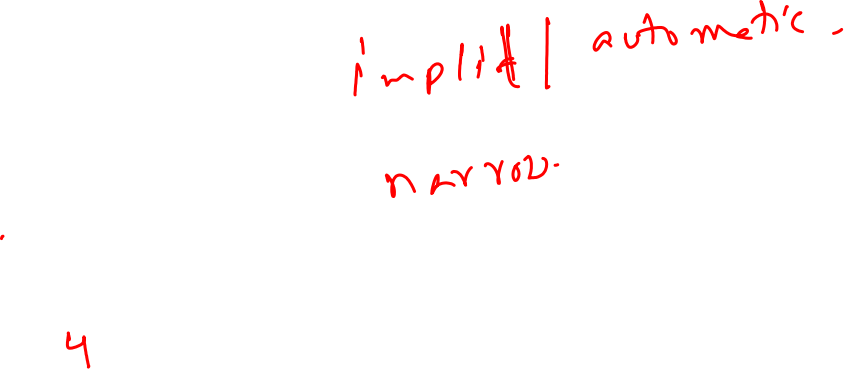 implit | automatic.
narrow.
4